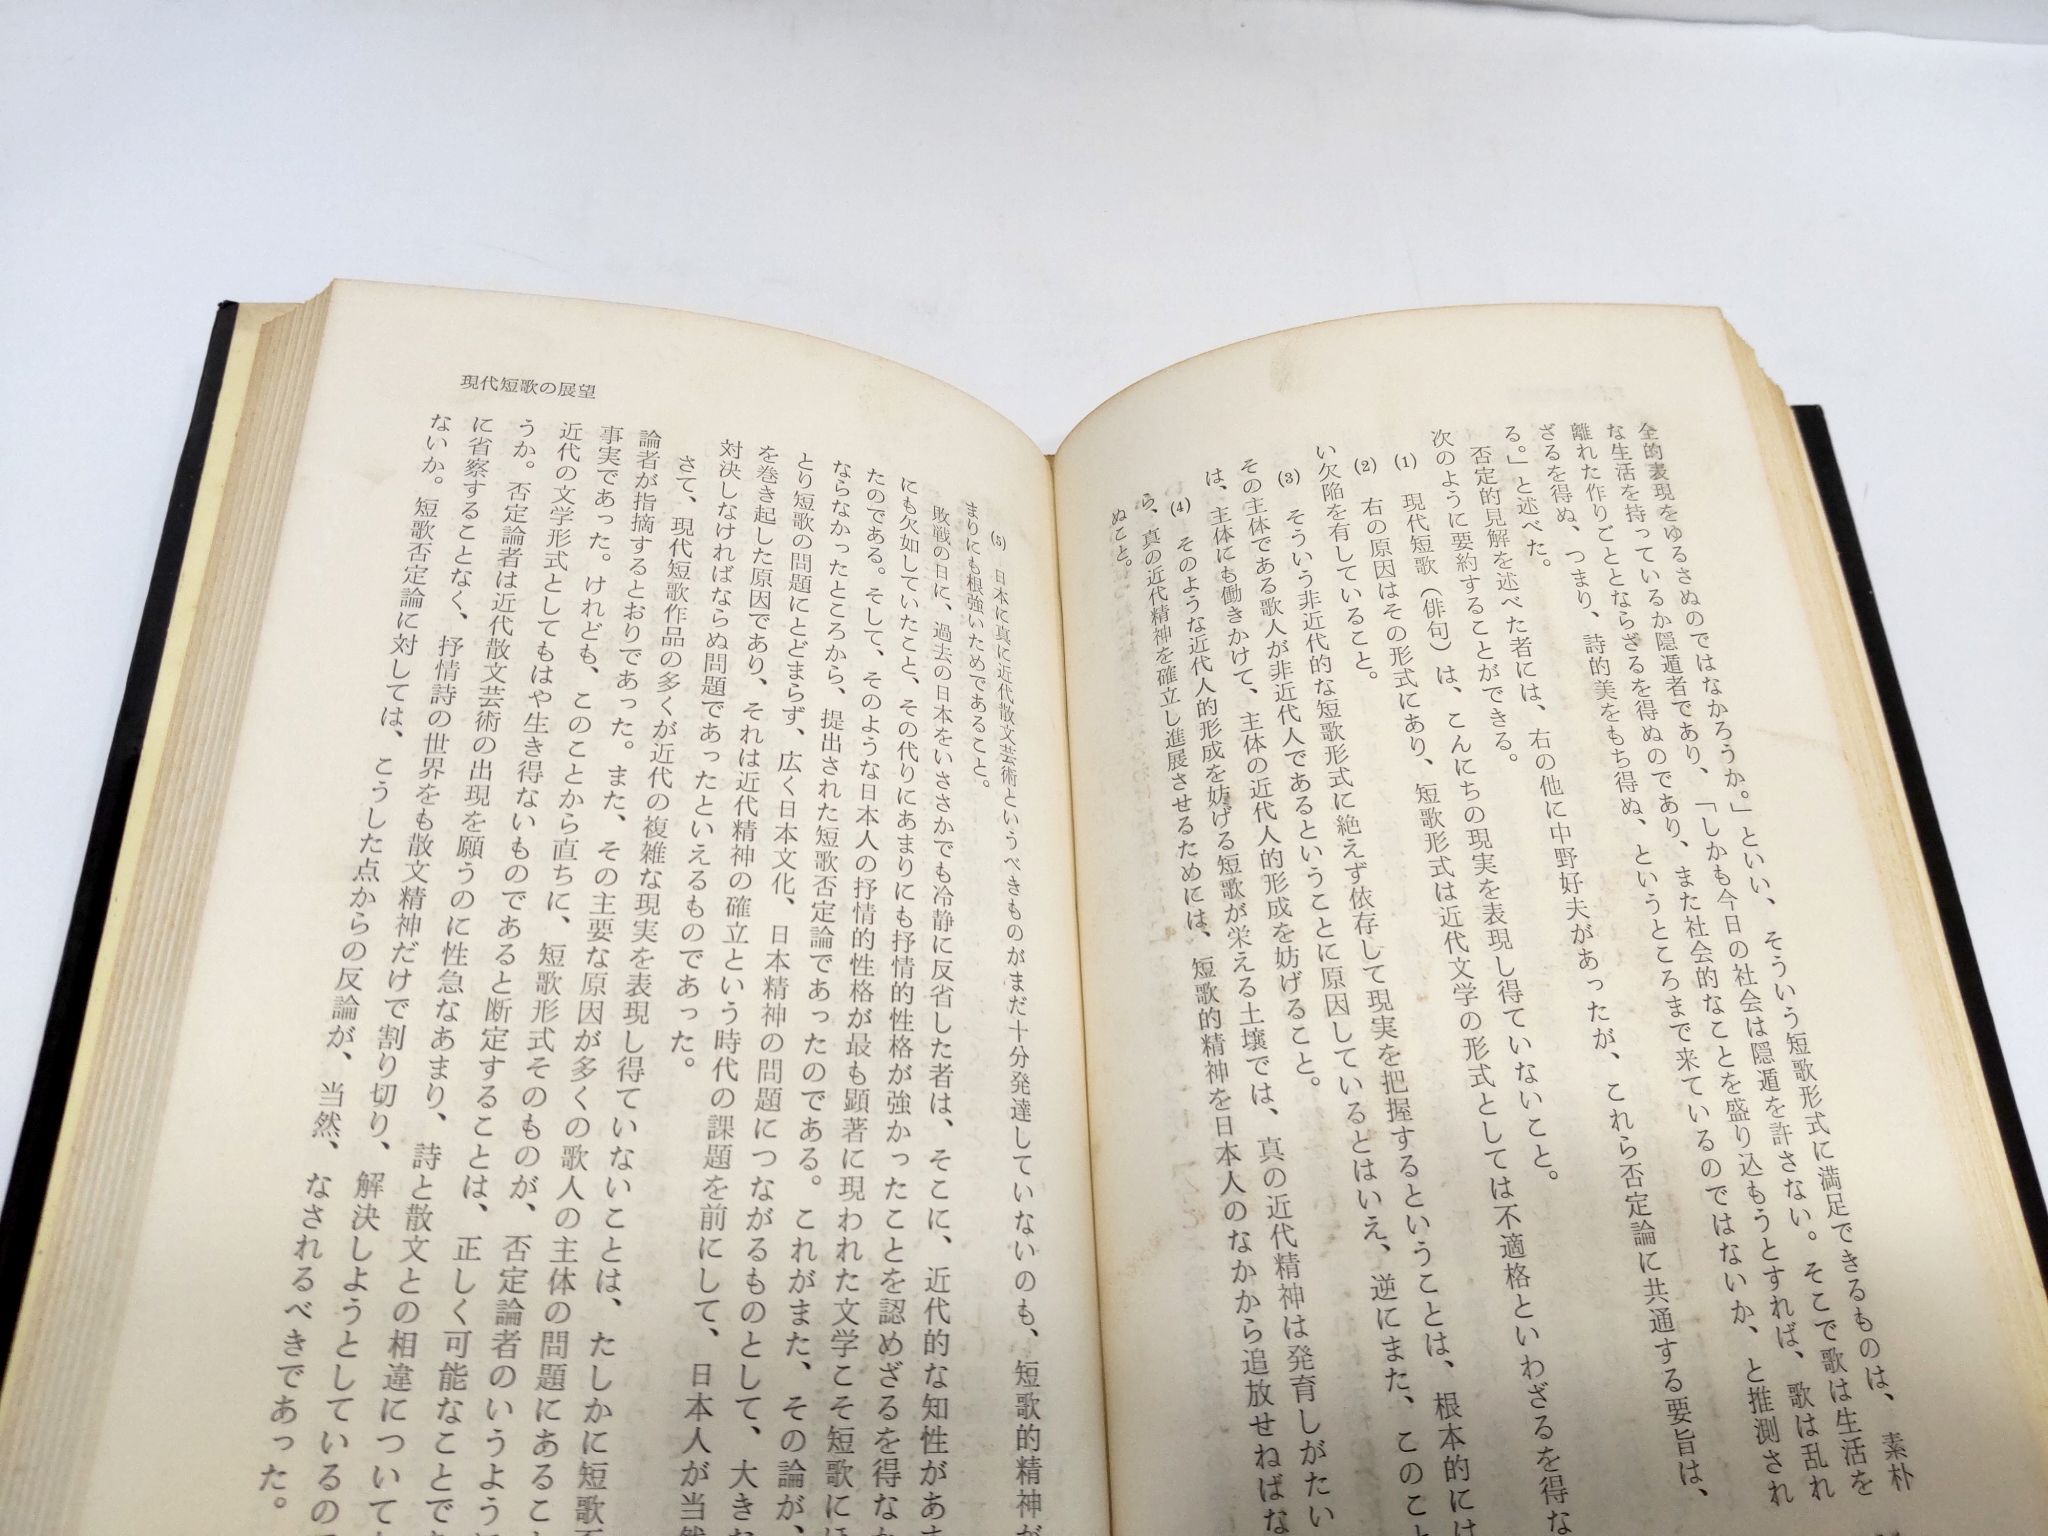 全的表現をゆるさぬのではなかろうか。」といい、そういう短歌形式に満足できるものは、素朴
な生活を持っているか隠遁者であり、「しかも今日の社会は隠遁を許さない。そこで歌は生活を
離れた作りごととならざるを得ぬのであり、また社会的なことを盛り込もうとすれば、歌は乱れ
ざるを得ぬ、つまり、詩的美をもち得ぬ、というところまで来ているのではないか、と推測され
る。」と述べた。
否定的見解を述べた者には、右の他に中野好夫があったが、これら否定論に共通する要旨は、
次のように要約することができる。
(1) 現代短歌（俳句）は、こんにちの現実を表現し得ていないこと。
(2) 右の原因はその形式にあり、短歌形式は近代文学の形式としては不適格といわざるを得な
い欠陥を有していること。
(3) そういう非近代的な短歌形式に絶えず依存して現実を把握するということは、根本的には
その主体である歌人が非近代人であるということに原因しているとはいえ、逆にまた、このこと
は、主体にも働きかけて、主体の近代人的形成を妨げること。
(4) そのような近代人的形成を妨げる短歌が栄える土壌では、真の近代精神は発育しがたい
ら、真の近代精神を確立し進展させるためには、短歌的精神を日本人のなかから追放せねばな
ぬこと。
(5) 日本に真に近代散文芸術というべきものがまだ十分発達していないのも、短歌的精神が
まりにも根強いためであること。
敗戦の日に、過去の日本をいささかでも冷静に反省した者は、そこに、近代的な知性があま
にも欠如していたこと、その代りにあまりにも抒情的性格が強かったことを認めざるを得なか
たのである。そして、そのような日本人の抒情的性格が最も顕著に現われた文学こそ短歌にほ
ならなかったところから、提出された短歌否定論であったのである。これがまた、その論が、
とり短歌の問題にとどまらず、広く日本文化、日本精神の問題につながるものとして、大きな
を巻き起した原因であり、それは近代精神の確立という時代の課題を前にして、日本人が当然
対決しなければならぬ問題であったといえるものであった。
さて、現代短歌作品の多くが近代の複雑な現実を表現し得ていないことは、たしかに短歌否
論者が指摘するとおりであった。また、その主要な原因が多くの歌人の主体の問題にあること
事実であった。けれども、このことから直ちに、短歌形式そのものが、否定論者のいうように
近代の文学形式としてもはや生き得ないものであると断定することは、正しく可能なことで
うか。否定論者は近代散文芸術の出現を願うのに性急なあまり、詩と散文との相違について
に省察することなく、抒情詩の世界をも散文精神だけで割り切り、解決しようとしているので
ないか。短歌否定論に対しては、こうした点からの反論が、当然、なされるべきであった。
現代短歌の展望